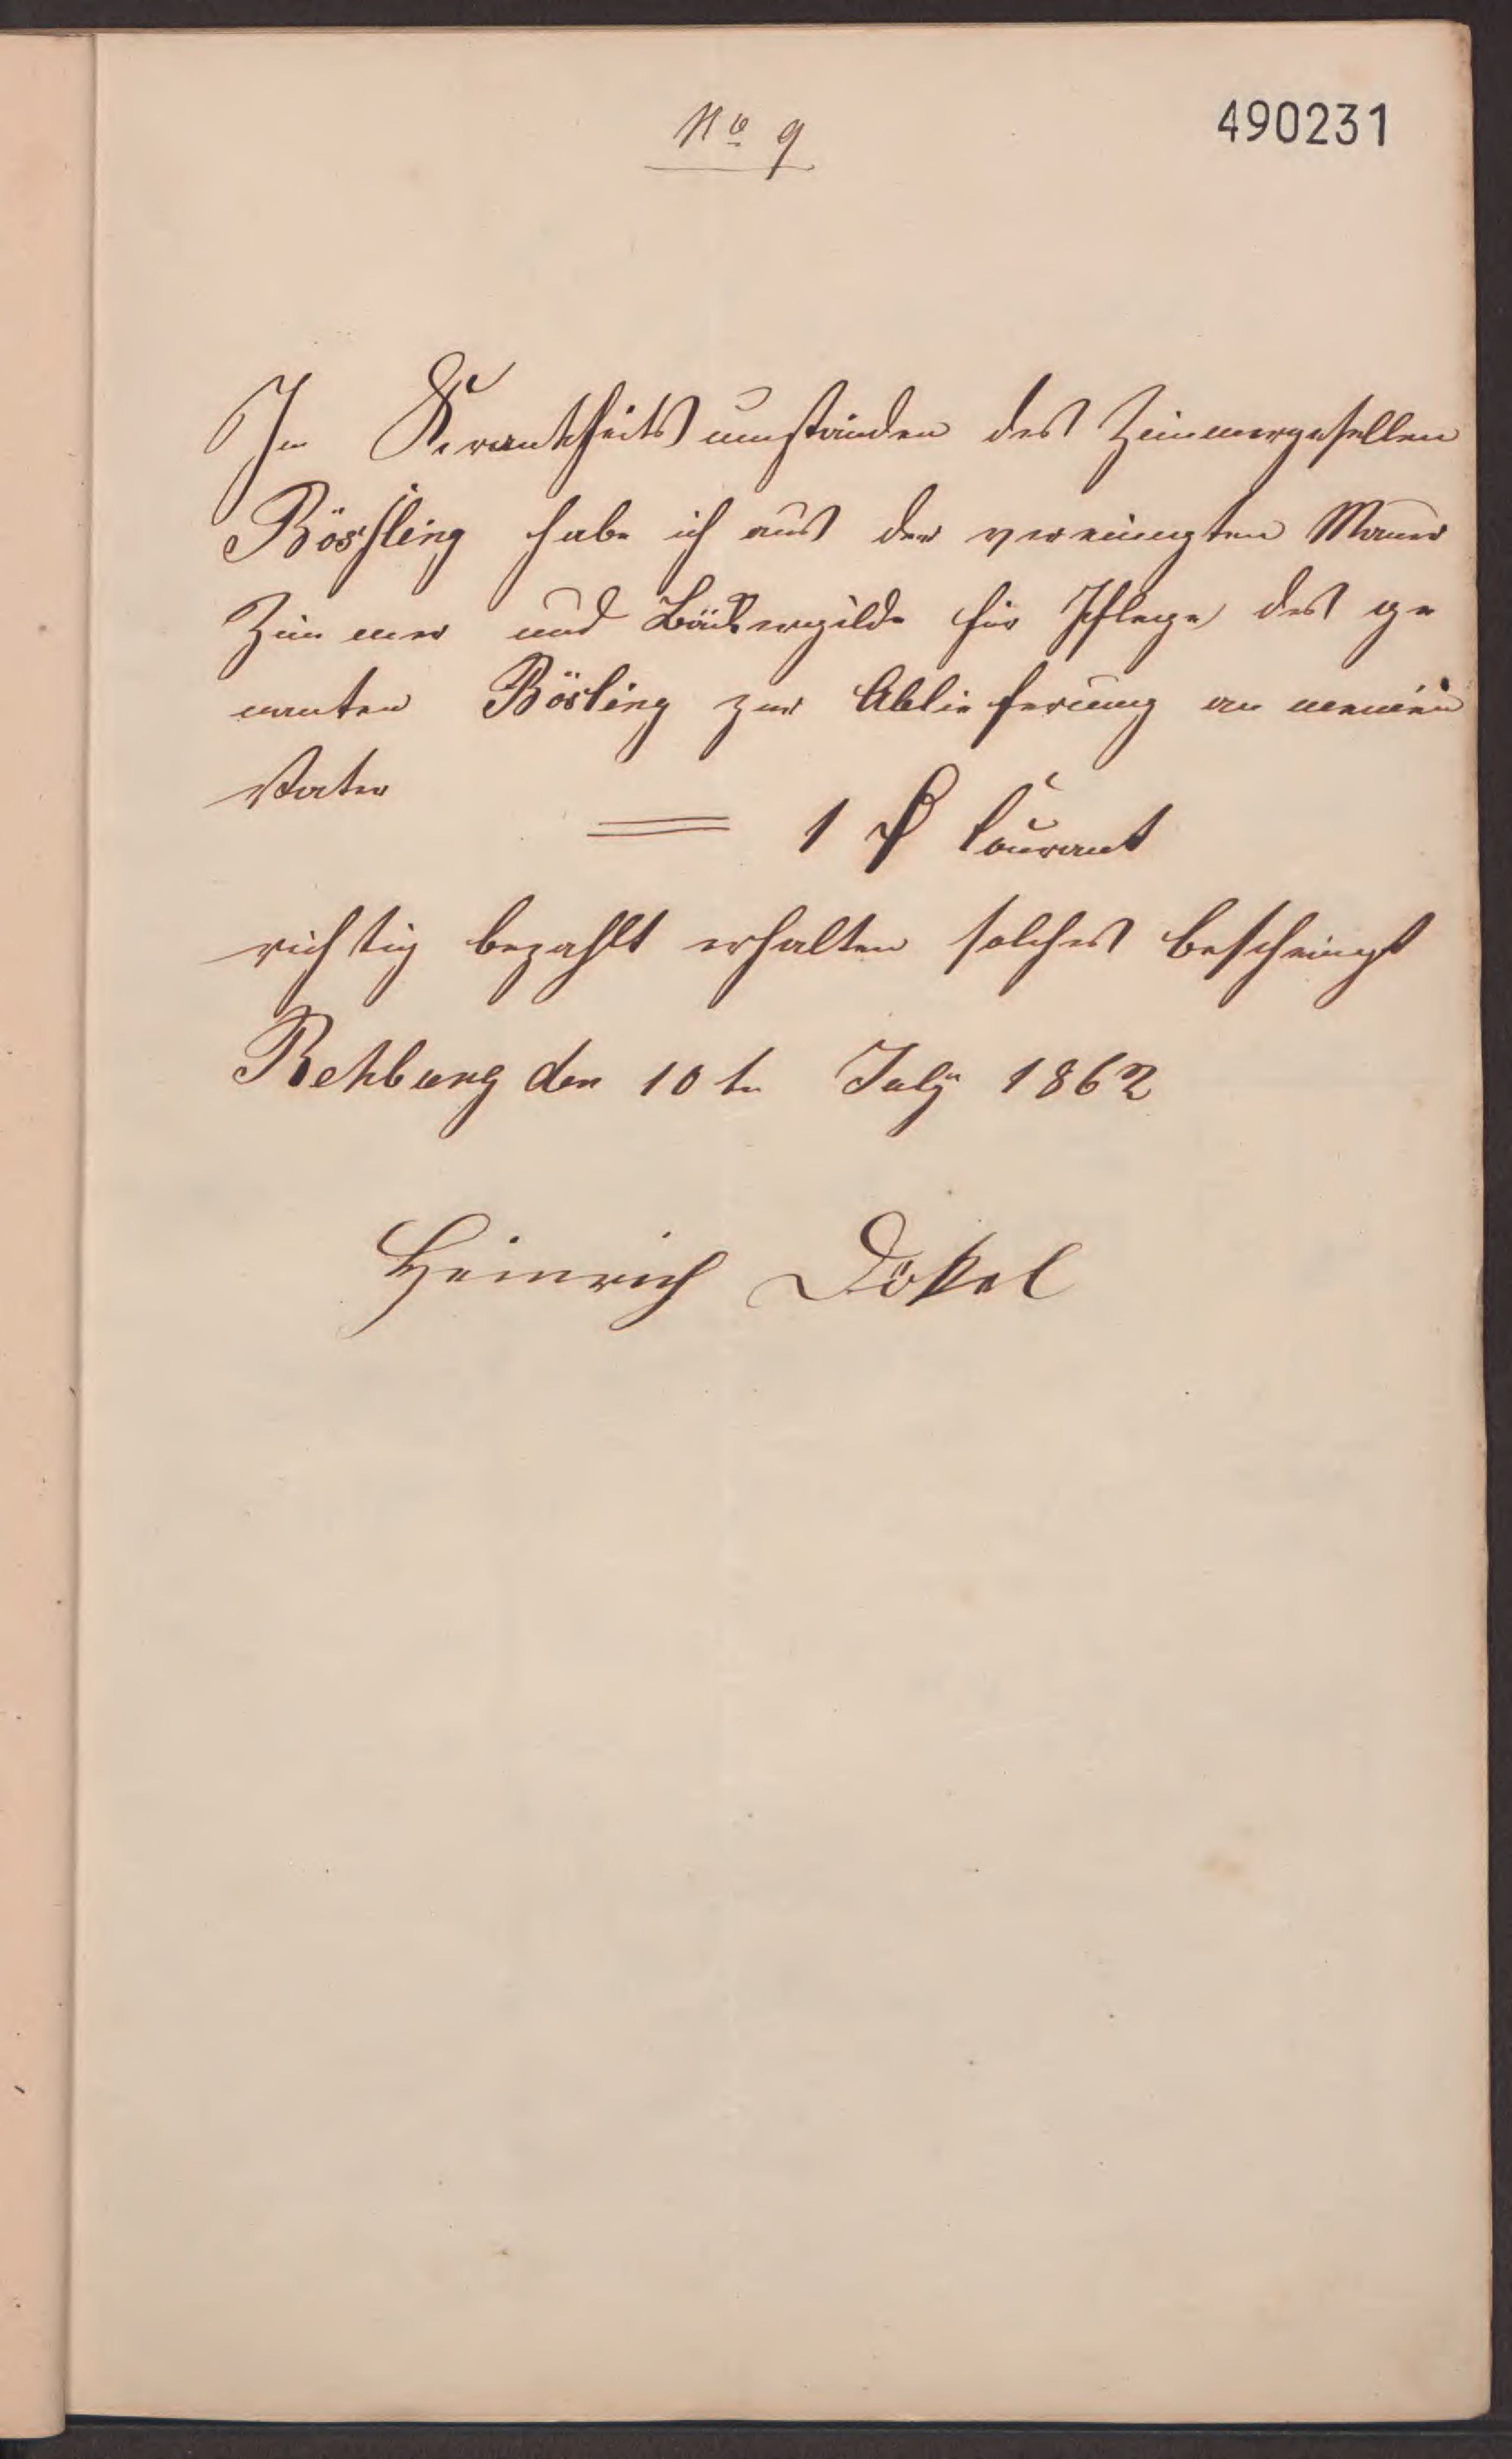 No 9
490231
In Krankheitsumständen des Zimmergesellen
Bössling habe ich aus der vereinigten Maurer
Zimmer und Bäckergilde für Pflege des ge
nanten Bösling zur Ablieferung an meinen
Vater
1 ₰ Courant
richtig bezahlt erhalten solches bescheinigt
Rehburg den 10 tn July 1862
Heinrich Dökel